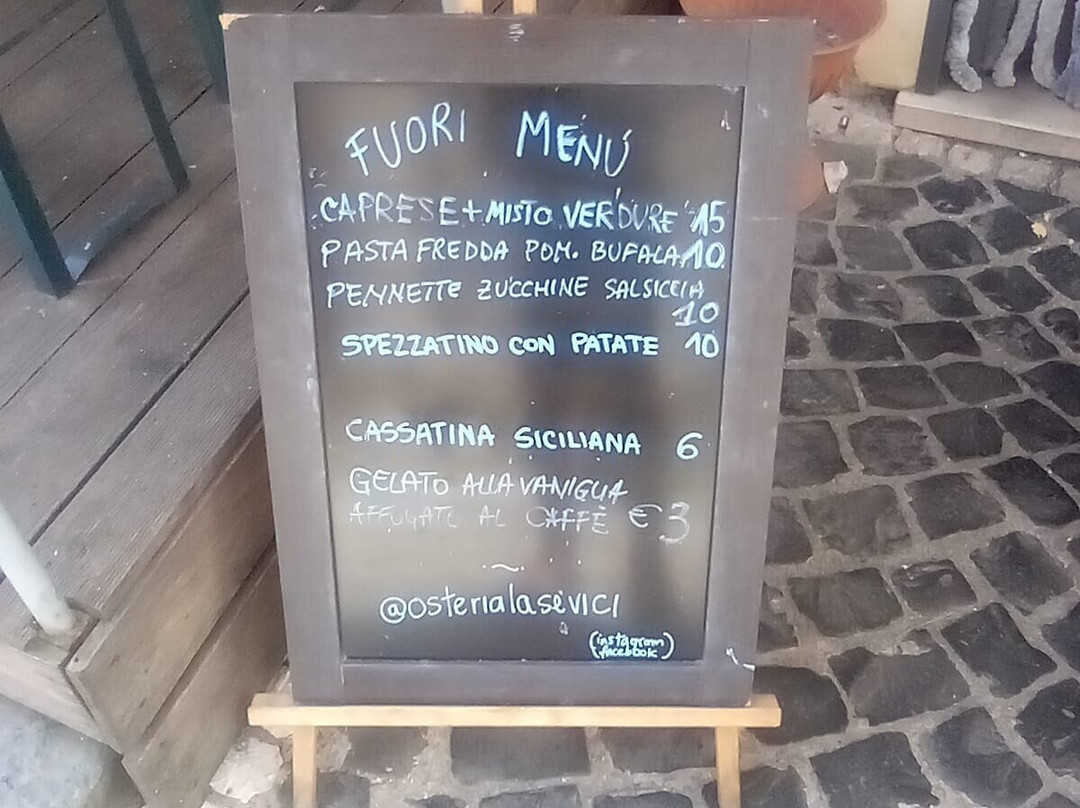 FUORI MENÚ
CAPRESE+MISTO VERDURE 15
PASTA FREDDA POM. BUFALA 10
PENNETTE ZUCCHINE SALSICCIA
10
SPEZZATINO CON PATATE 10
CASSATINA SICILIANA 6
GELATO ALLA VANIGLIA
AFFOGATO AL CAFFÈ € 3
~
@osterialasevici
(instagram
facebook)